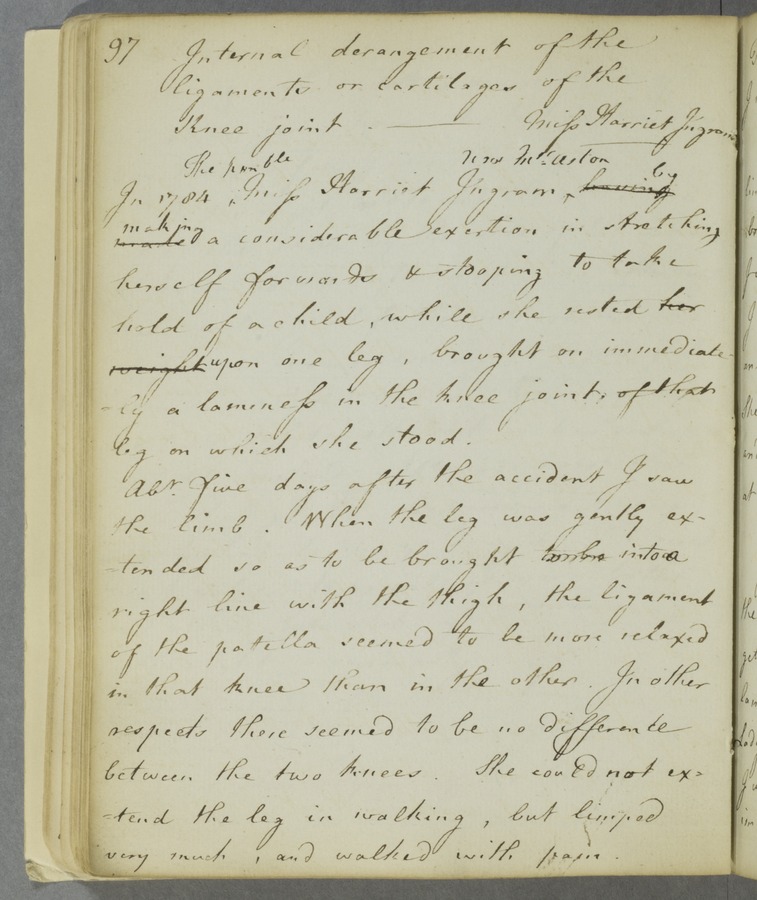 97 Internal derangement of the
ligaments or cartilages of the
Knee joint. — Miss Harriet Ingram
The honble now Mrs. Aston
In 1784, Miss Harriet Ingram, having by
making
made a considerable exertion in stretching
herself forwards & stooping to take
hold of a child, while she rested her
weight upon one leg, brought on immediate-
-ly a lameness in the knee joint, of that
leg on which she stood.
Abt. five days after the accident I saw
the limb. When the leg was gently ex-
-tended so as to be brought into a
right line with the thigh, the ligament
of the patella seemed to be more relaxed
in that knee than in the other. In other
respects there seemed to be no difference
between the two knees. She could not ex=
-tend the leg in walking, but limped
very much, and walked with pain.